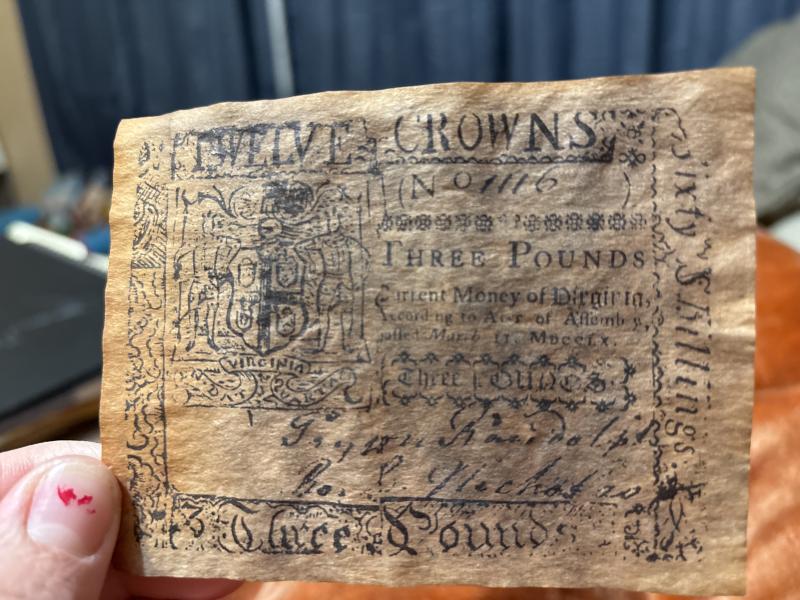 TWELVE CROWNS
(No 1116 )
THREE POUNDS
Current Money of Virginia,
According to Act of Assembly,
passed March 11. MDCCLX.
Three POUNDS
VIRGINIA
Peyton Randolph
Ro. C. Nicholas
Three Pounds
Sixty Shillings